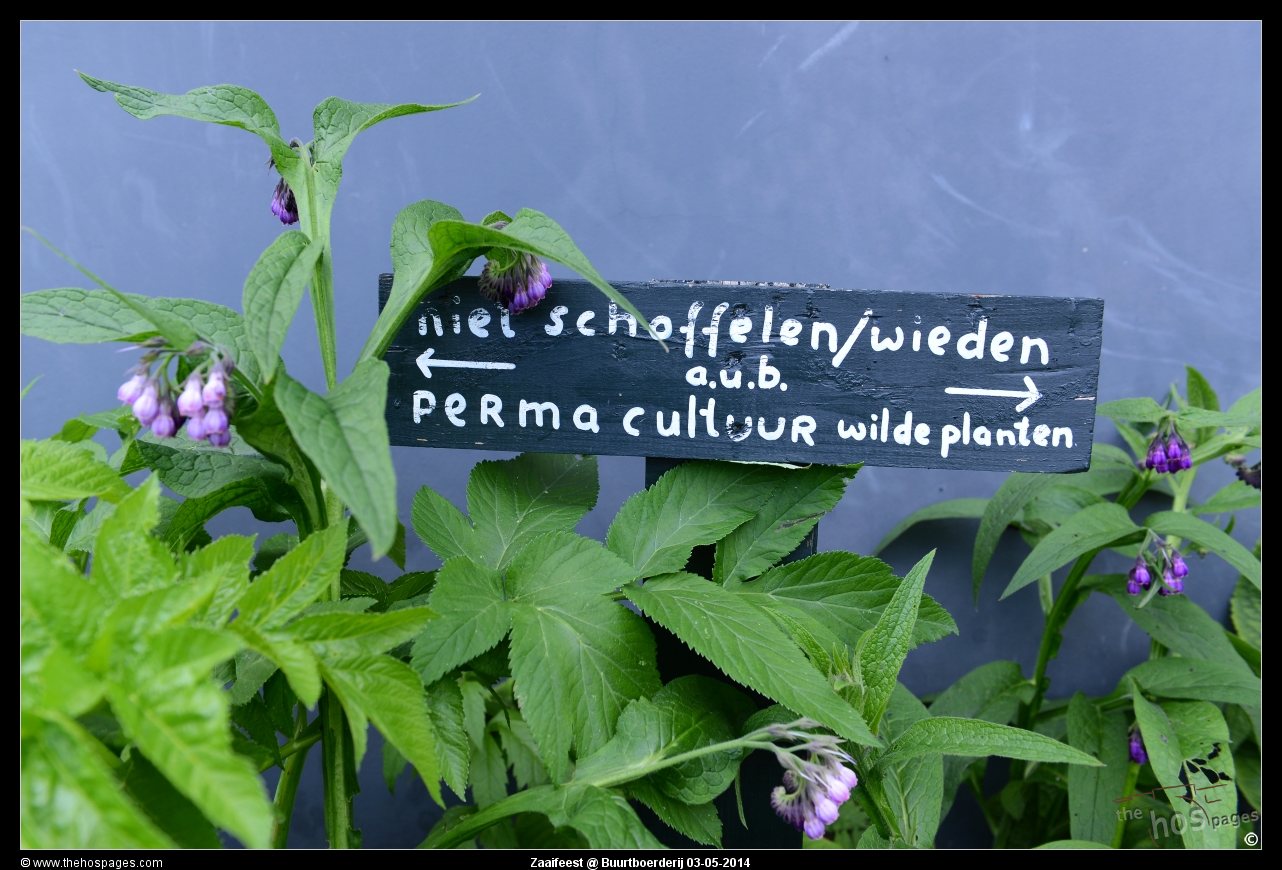 niet schoffelen/wieden
a.u.b.
← →
permacultuur wilde planten.
the hospages
©
© www.thehospages.com
Zaaifeest @ Buurtboerderij 03-05-2014